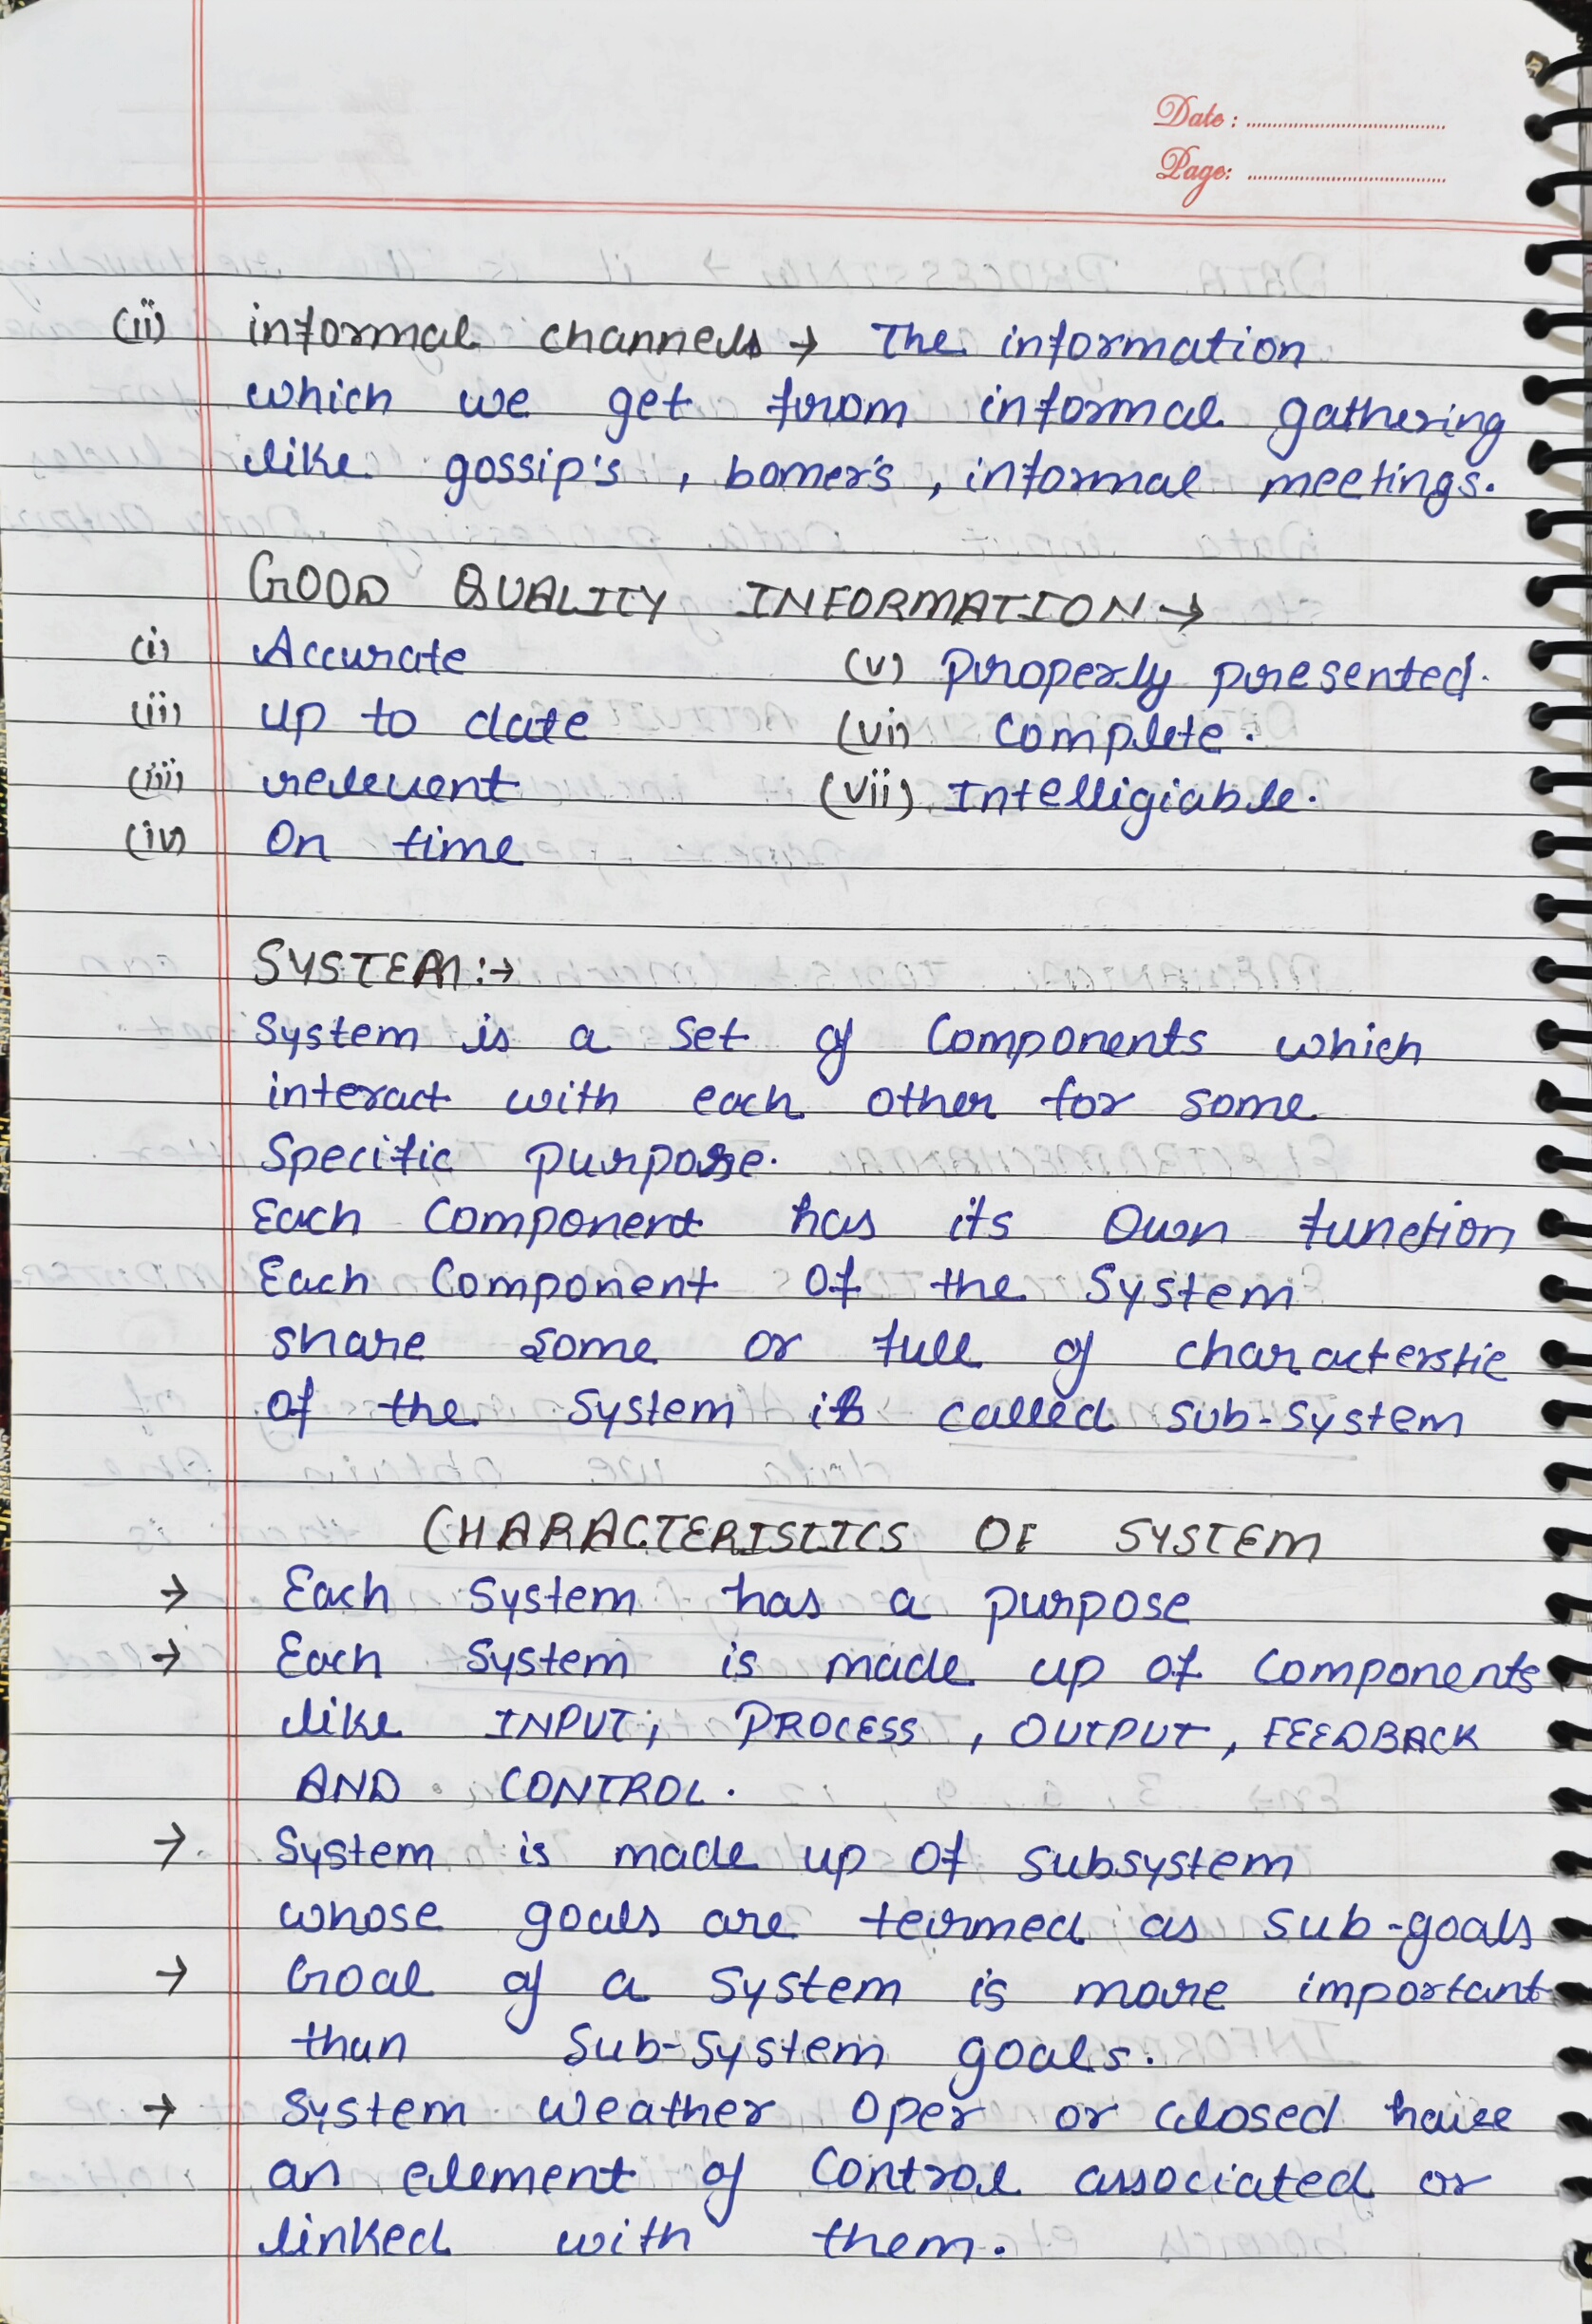 Date :
Page:
(ii) informal channels → The information
which we get from informal gathering
like gossip's , bomer's , informal meetings.
GOOD QUALITY INFORMATION →
(i) Accurate (v) properly presented.
(ii) up to date (vi) Complete.
(iii) relevent (vii) Intelligiable.
(iv) On time
SYSTEM :→
System is a set of Components which
interact with each other for some
Specific purpose.
Each Component has its Own function
Each Component Of the System
share some or full of characterstic
Of the System is called Sub-System
CHARACTERISTICS OF SYSTEM
→ Each System has a purpose
→ Each System is made up of Components
like INPUT, PROCESS , OUTPUT, FEEDBACK
AND CONTROL.
→ System is made up of Subsystem
whose goals are termed as Sub-goals
→ Goal of a System is more important
than Sub-System goals.
→ System weather Oper or closed have
an element of Control associated or
linked with them.